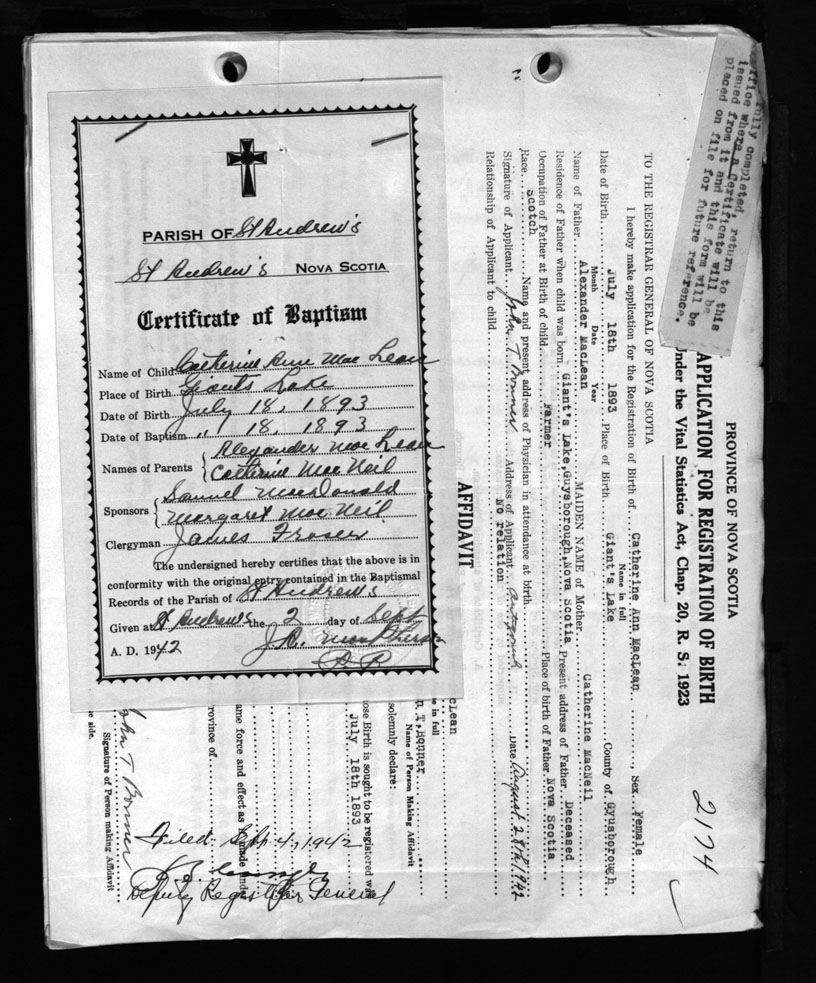 PARISH OF St Andrew's
St Andrew's NOVA SCOTIA
Certificate of Baptism
Name of Child Catherine Ann Mac Lean
Place of Birth Giants Lake
Date of Birth July 18, 1893
Date of Baptism " 18, 1893
Names of Parents { Alexander Mac Lean
Catherine Mac Neil
Sponsors { Samuel MacDonald
Margaret Mac Neil
Clergyman James Fraser
The undersigned hereby certifies that the above is in
conformity with the original entry contained in the Baptismal
Records of the Parish of St Andrew's
Given at St Andrew's the 2 day of Sept
A. D. 1942 J. C. MacPherson
P. P.
fully completed, return to this
office where a Certificate will be
issued from it and this form will be
placed on file for future reference.
PROVINCE OF NOVA SCOTIA
APPLICATION FOR REGISTRATION OF BIRTH
Under the Vital Statistics Act, Chap. 20, R. S. 1923
2174
TO THE REGISTRAR GENERAL OF NOVA SCOTIA
I hereby make application for the Registration of Birth of Catherine Ann MacLean, Sex Female
Name in full
Date of Birth July 18th 1893 Place of Birth Giant's Lake County of Gyusborough
Month Date Year
Name of Father Alexander MacLean MAIDEN NAME of Mother Catherine MacNeil
Residence of Father when child was born Giant's Lake, Guysborough, Nova Scotia Present address of Father Deceased
Occupation of Father at Birth of child Farmer Place of birth of Father Nova Scotia
Race Scotch Name and present address of Physician in attendance at birth
Signature of Applicant John T Bonner Address of Applicant Antigonish Date August 28th 1942
Relationship of Applicant to child No relation
AFFIDAVIT
cLean
e in full
n T. Bonner
Name of Person Making Affidavit
solemnly declare:
ose Birth is sought to be registered w
July 18th 1893
ame force and effect as if made
rovince of
Filed Sept 4, 1942
Deputy Registrar General
John T Bonner
Signature of Person making Affidavit
e side.